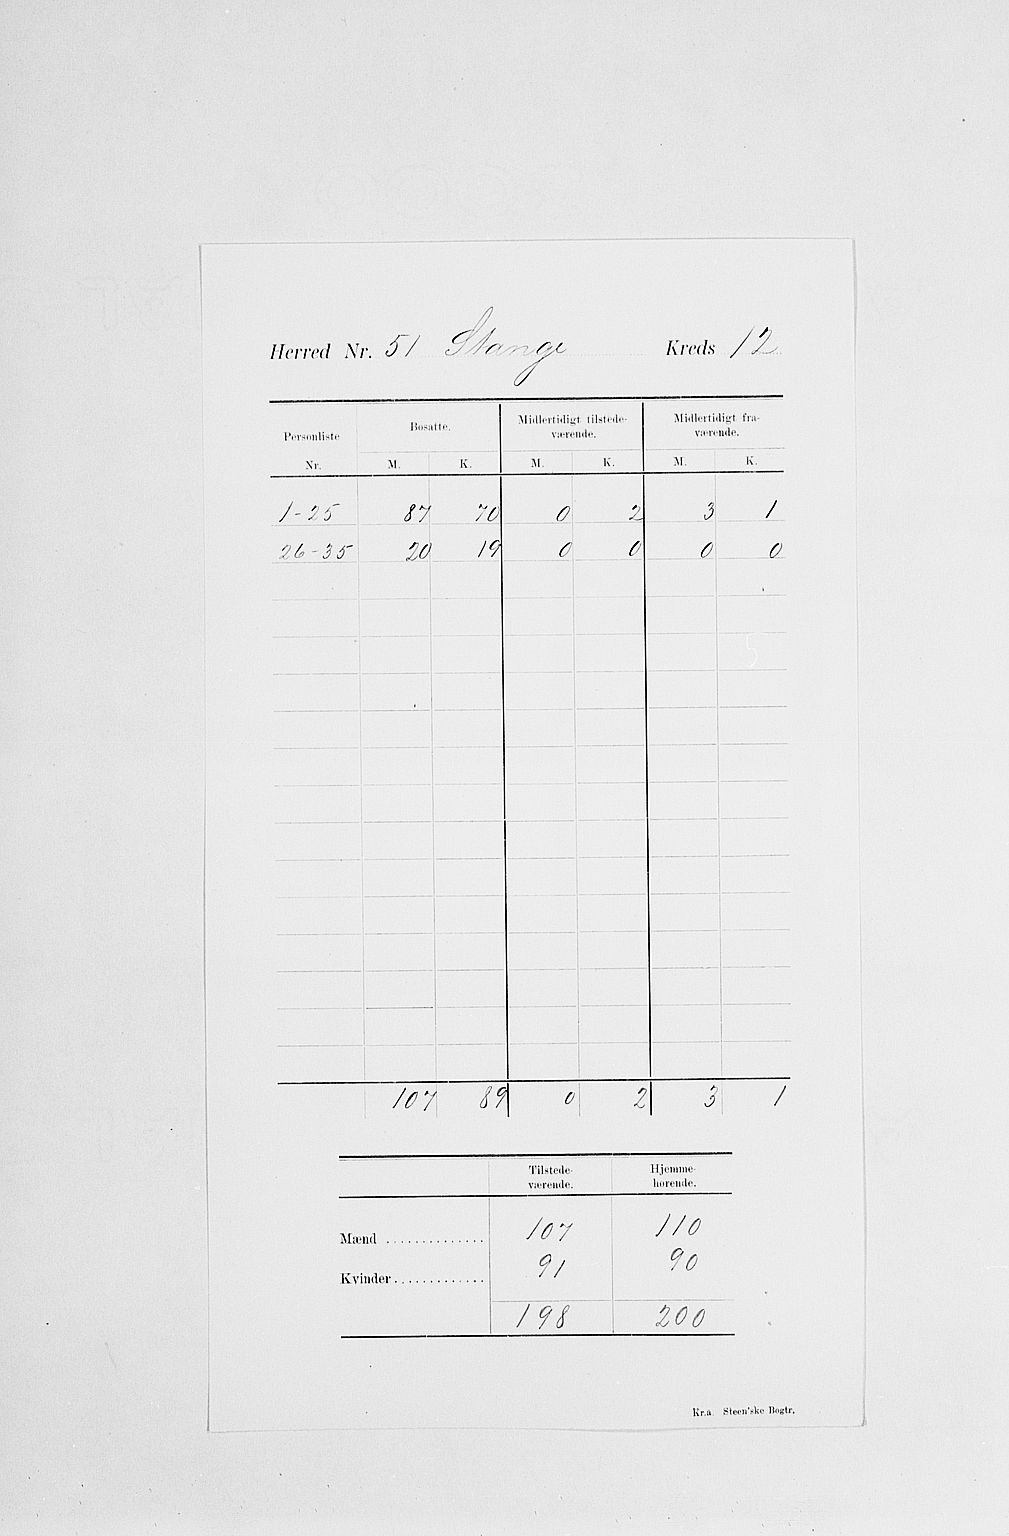 Herred Nr. 51 Stange Kreds 12
Personliste Nr. Bosatte. Midlertidigt tilstede-værende. Midlertidigt fra-værende.
M. K. M. K. M. K.
1-25 87 70 0 2 3 1
26-35 20 19 0 0 0 0
107 89 0 2 3 1
Tilstede-værende. Hjemme-hørende.
Mænd .............. 107 110
Kvinder............. 91 90
198 200
Kr.a. Steen'ske Bogtr.